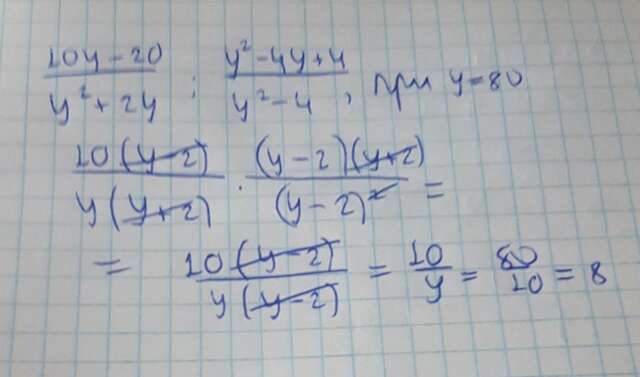 (10y-20)/(y²+2y) : (y²-4y+4)/(y²-4), при y=80
10(y-2)/y(y+2) · (y-2)(y+2)/(y-2)² =
= 10(y-2)/y(y-2) = 10/y = 80/10 = 8